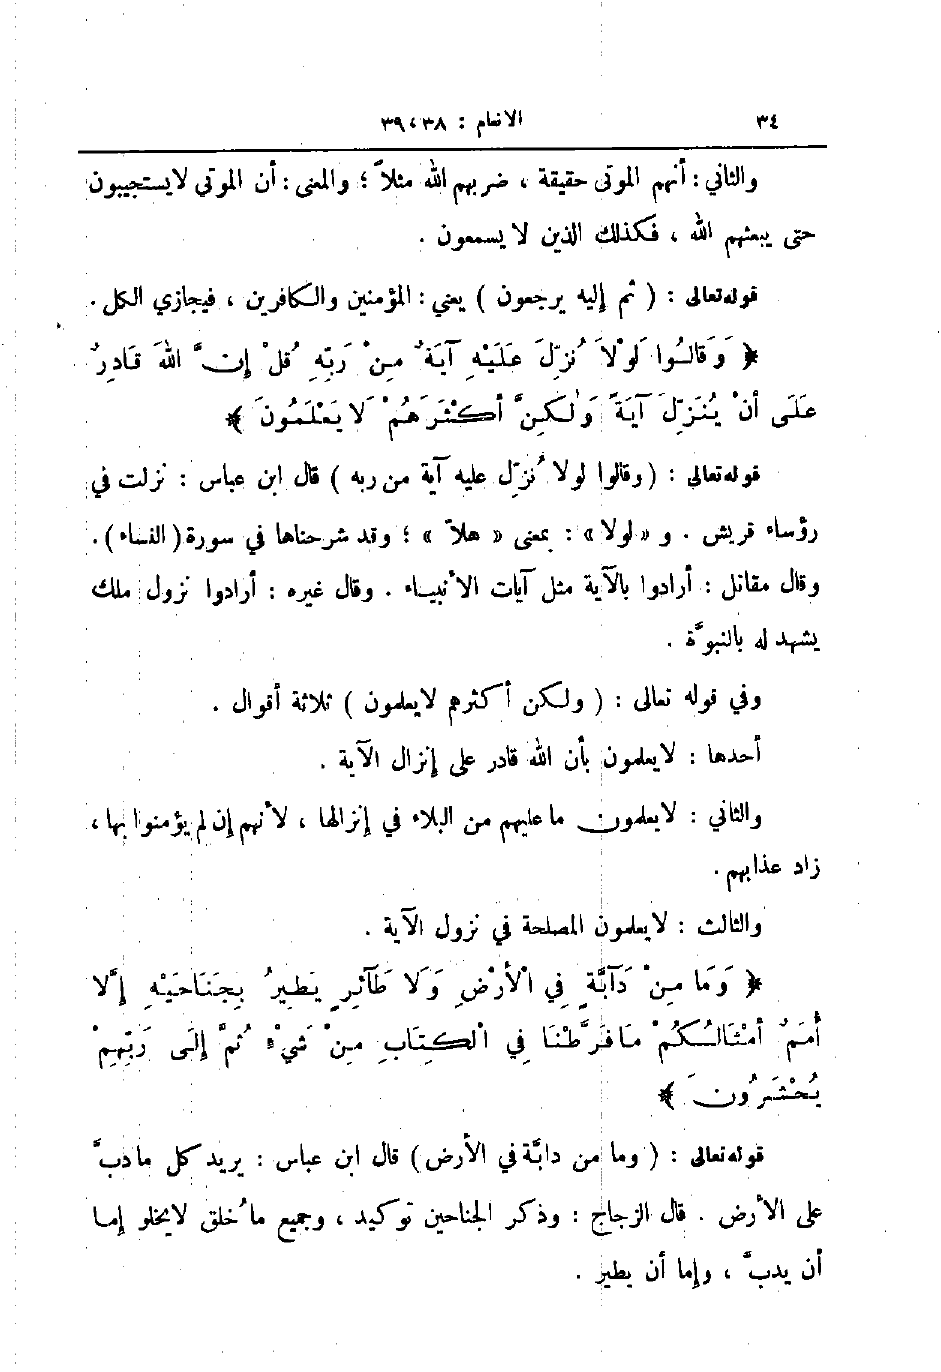 ٣٤ الانعام : ٣٨،٣٩
والثاني : أنهم الموتى حقيقة ، ضربهم الله مثلاً ؛ والمعنى : أن الموتى لا يستجيبون
حتى يبعثهم الله ، فكذلك الذين لا يسمعون .
قوله تعالى : ( ثم إليه يرجعون ) يعني : المؤمنين والكافرين ، فيجازي الكل .
﴿ وَقَالُوا لَوْلاَ نُزِّلَ عَلَيْهِ آيَةٌ مِنْ رَبِّهِ قُلْ إِنَّ اللهَ قَادِرٌ
عَلَى أَنْ يُنَزِّلَ آيَةً وَلٰكِنَّ أَكْثَرَهُمْ لاَ يَعْلَمُونَ ﴾
قوله تعالى : ( وقالوا لولا نُزِّل عليه آية من ربه ) قال ابن عباس : نزلت في
رؤساء قريش . و « لولا » : بمعنى « هلاّ » ؛ وقد شرحناها في سورة ( النساء ) .
وقال مقاتل : أرادوا بالآية مثل آيات الأنبياء . وقال غيره : أرادوا نزول ملك
يشهد له بالنبوَّة .
وفي قوله تعالى : ( ولكن أكثرهم لايعلمون ) ثلاثة أقوال .
أحدها : لايعلمون بأن الله قادر على إنزال الآية .
والثاني : لايعلمون ماعليهم من البلاء في إنزالها ، لأنهم إن لم يؤمنوا بها ،
زاد عذابهم .
والثالث : لايعلمون المصلحة في نزول الآية .
﴿ وَمَا مِنْ دَآبَّةٍ فِي الْأَرْضِ وَلَا طَآئِرٍ يَطِيرُ بِجَنَاحَيْهِ إِلَّا
أُمَمٌ أَمْثَالُكُمْ مَافَرَّطْنَا فِي الْكِتَابِ مِنْ شَيْءٍ ثُمَّ إِلَى رَبِّهِمْ
يُحْشَرُونَ ﴾
قوله تعالى : ( وما من دابَّة في الأرض ) قال ابن عباس : يريد كل مادبَّ
على الأرض . قال الزجاج : وذكر الجناحين توكيد ، وجميع ماخُلق لايخلو إما
أن يدبَّ ، وإما أن يطير .